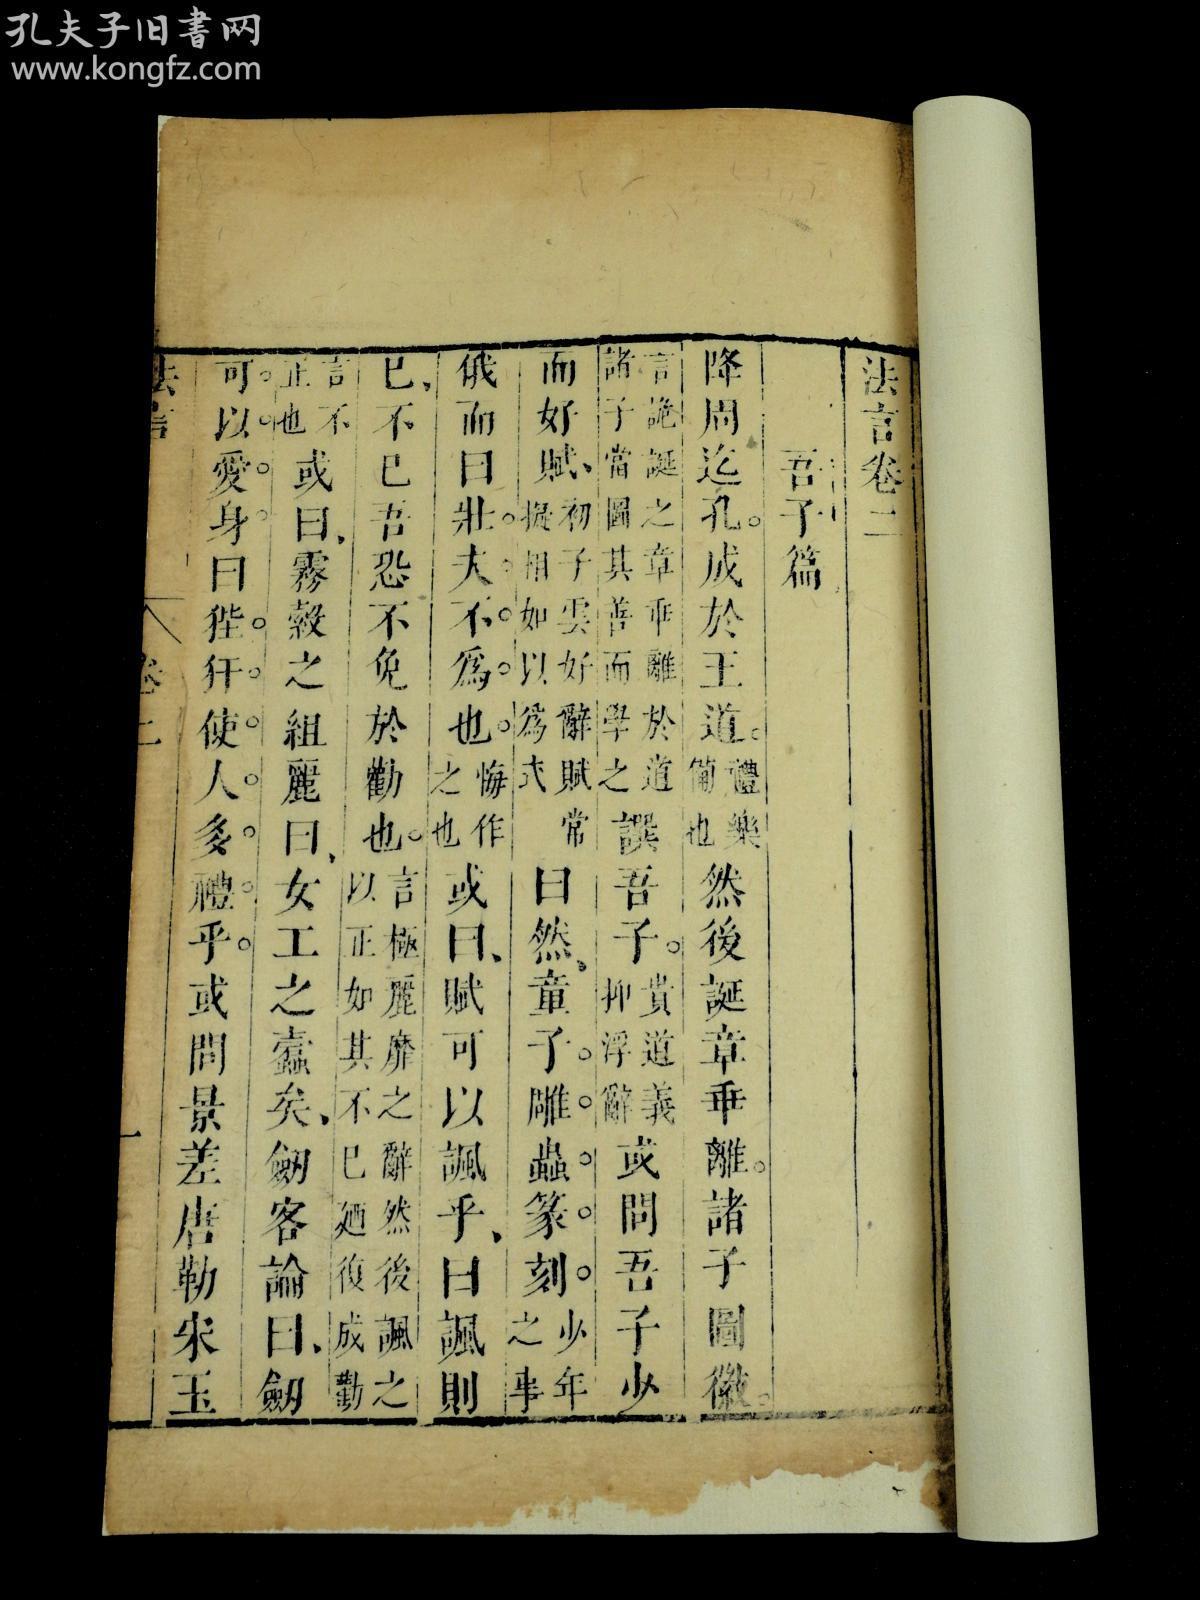 孔夫子旧書网
www.kongfz.com
法言卷二
吾子篇
降周迄孔。成於王道。禮樂備也然後誕章乖離。諸子圖徽。
言詭誕之章乖離於道諸子當圖其善而學之譔吾子。貴道義抑浮辭或問吾子少
而好賦、初子雲好辭賦常擬相如以爲式曰然、童子。雕。蟲。篆。刻。少年之事
俄而曰壯。夫。不。爲。也。悔作之也或曰、賦可以諷乎、曰諷則
已、不已吾恐不免於勸也。言極麗靡之辭然後諷之以正如其不已廼復成勸
言不正也或曰、霧縠之組麗曰、女工之蠹矣、劒客論曰、劒
可。以。愛。身。曰狴。犴。使。人。多。禮。乎。或問景差唐勒宋玉
法言 卷二 一